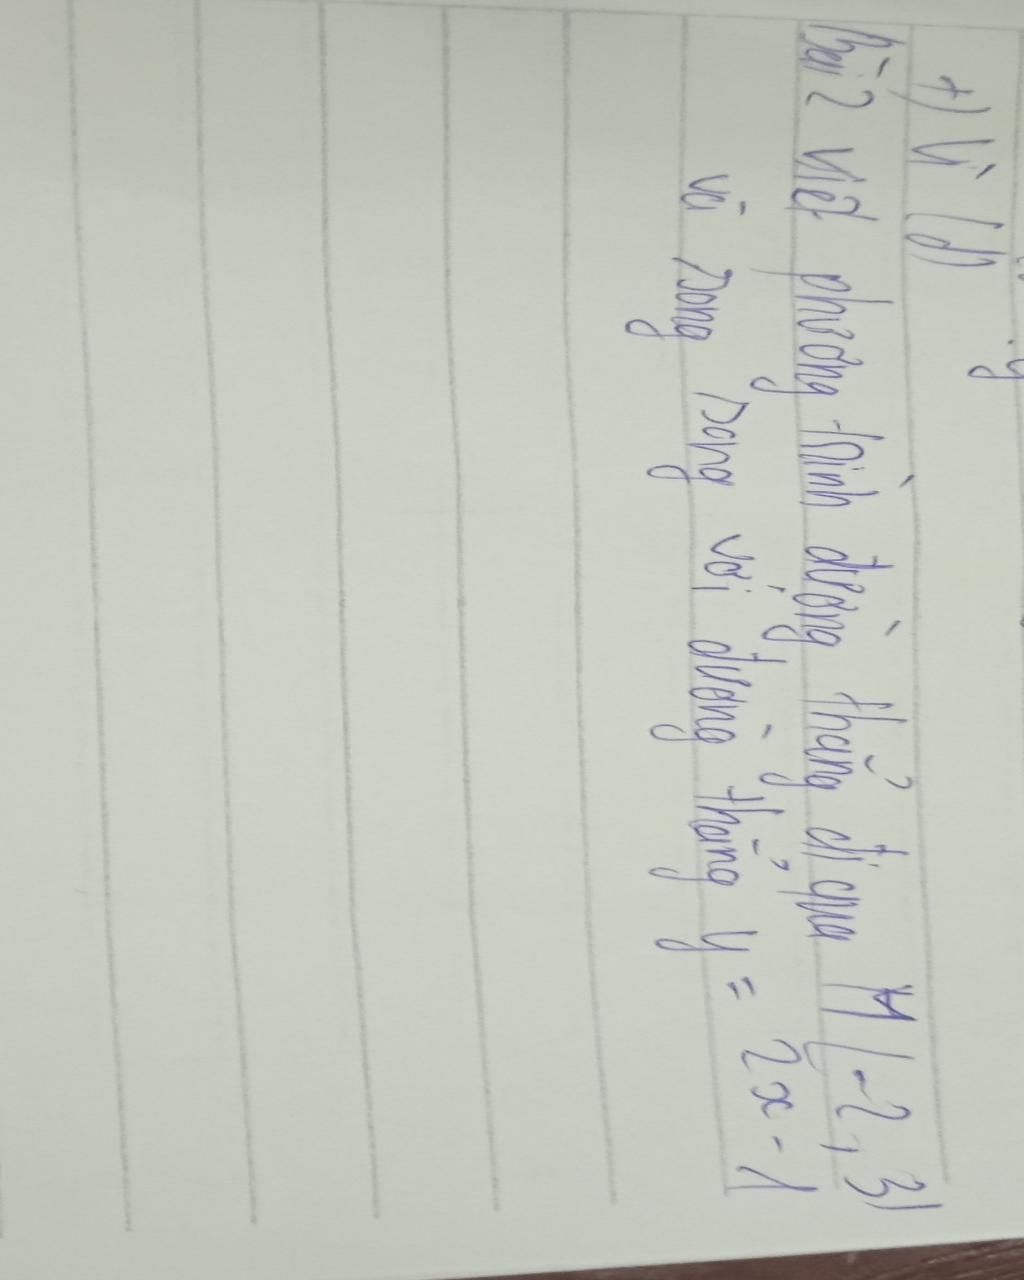 t) Vì (d)
Bài 2 Viết phương trình đường thẳng đi qua M(-2, 3)
và song song với đường thẳng y = 2x - 1